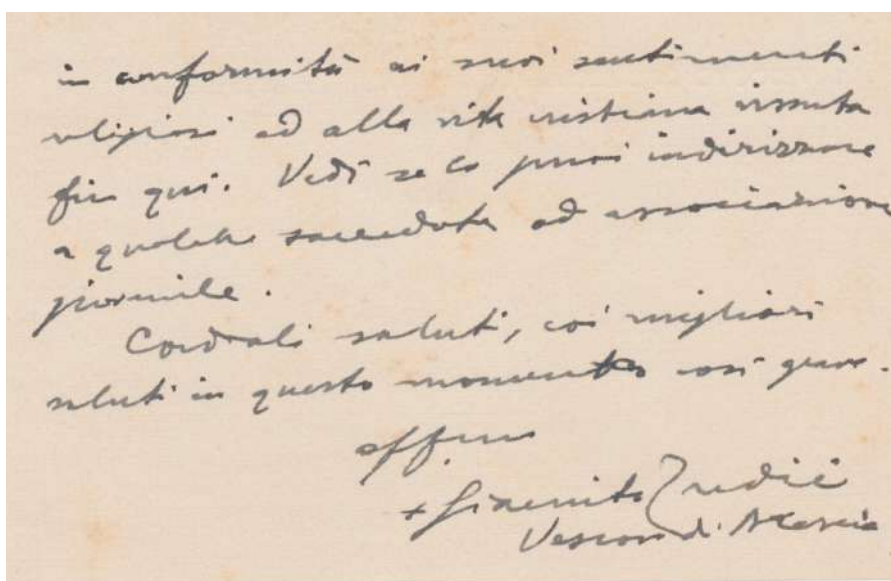 in conformità ai suoi sentimenti
religiosi ed alla vita cristiana vissuta
fin qui. Vedi se lo puoi indirizzare
a qualche sacerdote od associazione
giovanile.
Cordiali saluti, coi migliori
saluti in questo momento così grave.
aff.mo
+ Giacinto
Vescovo di